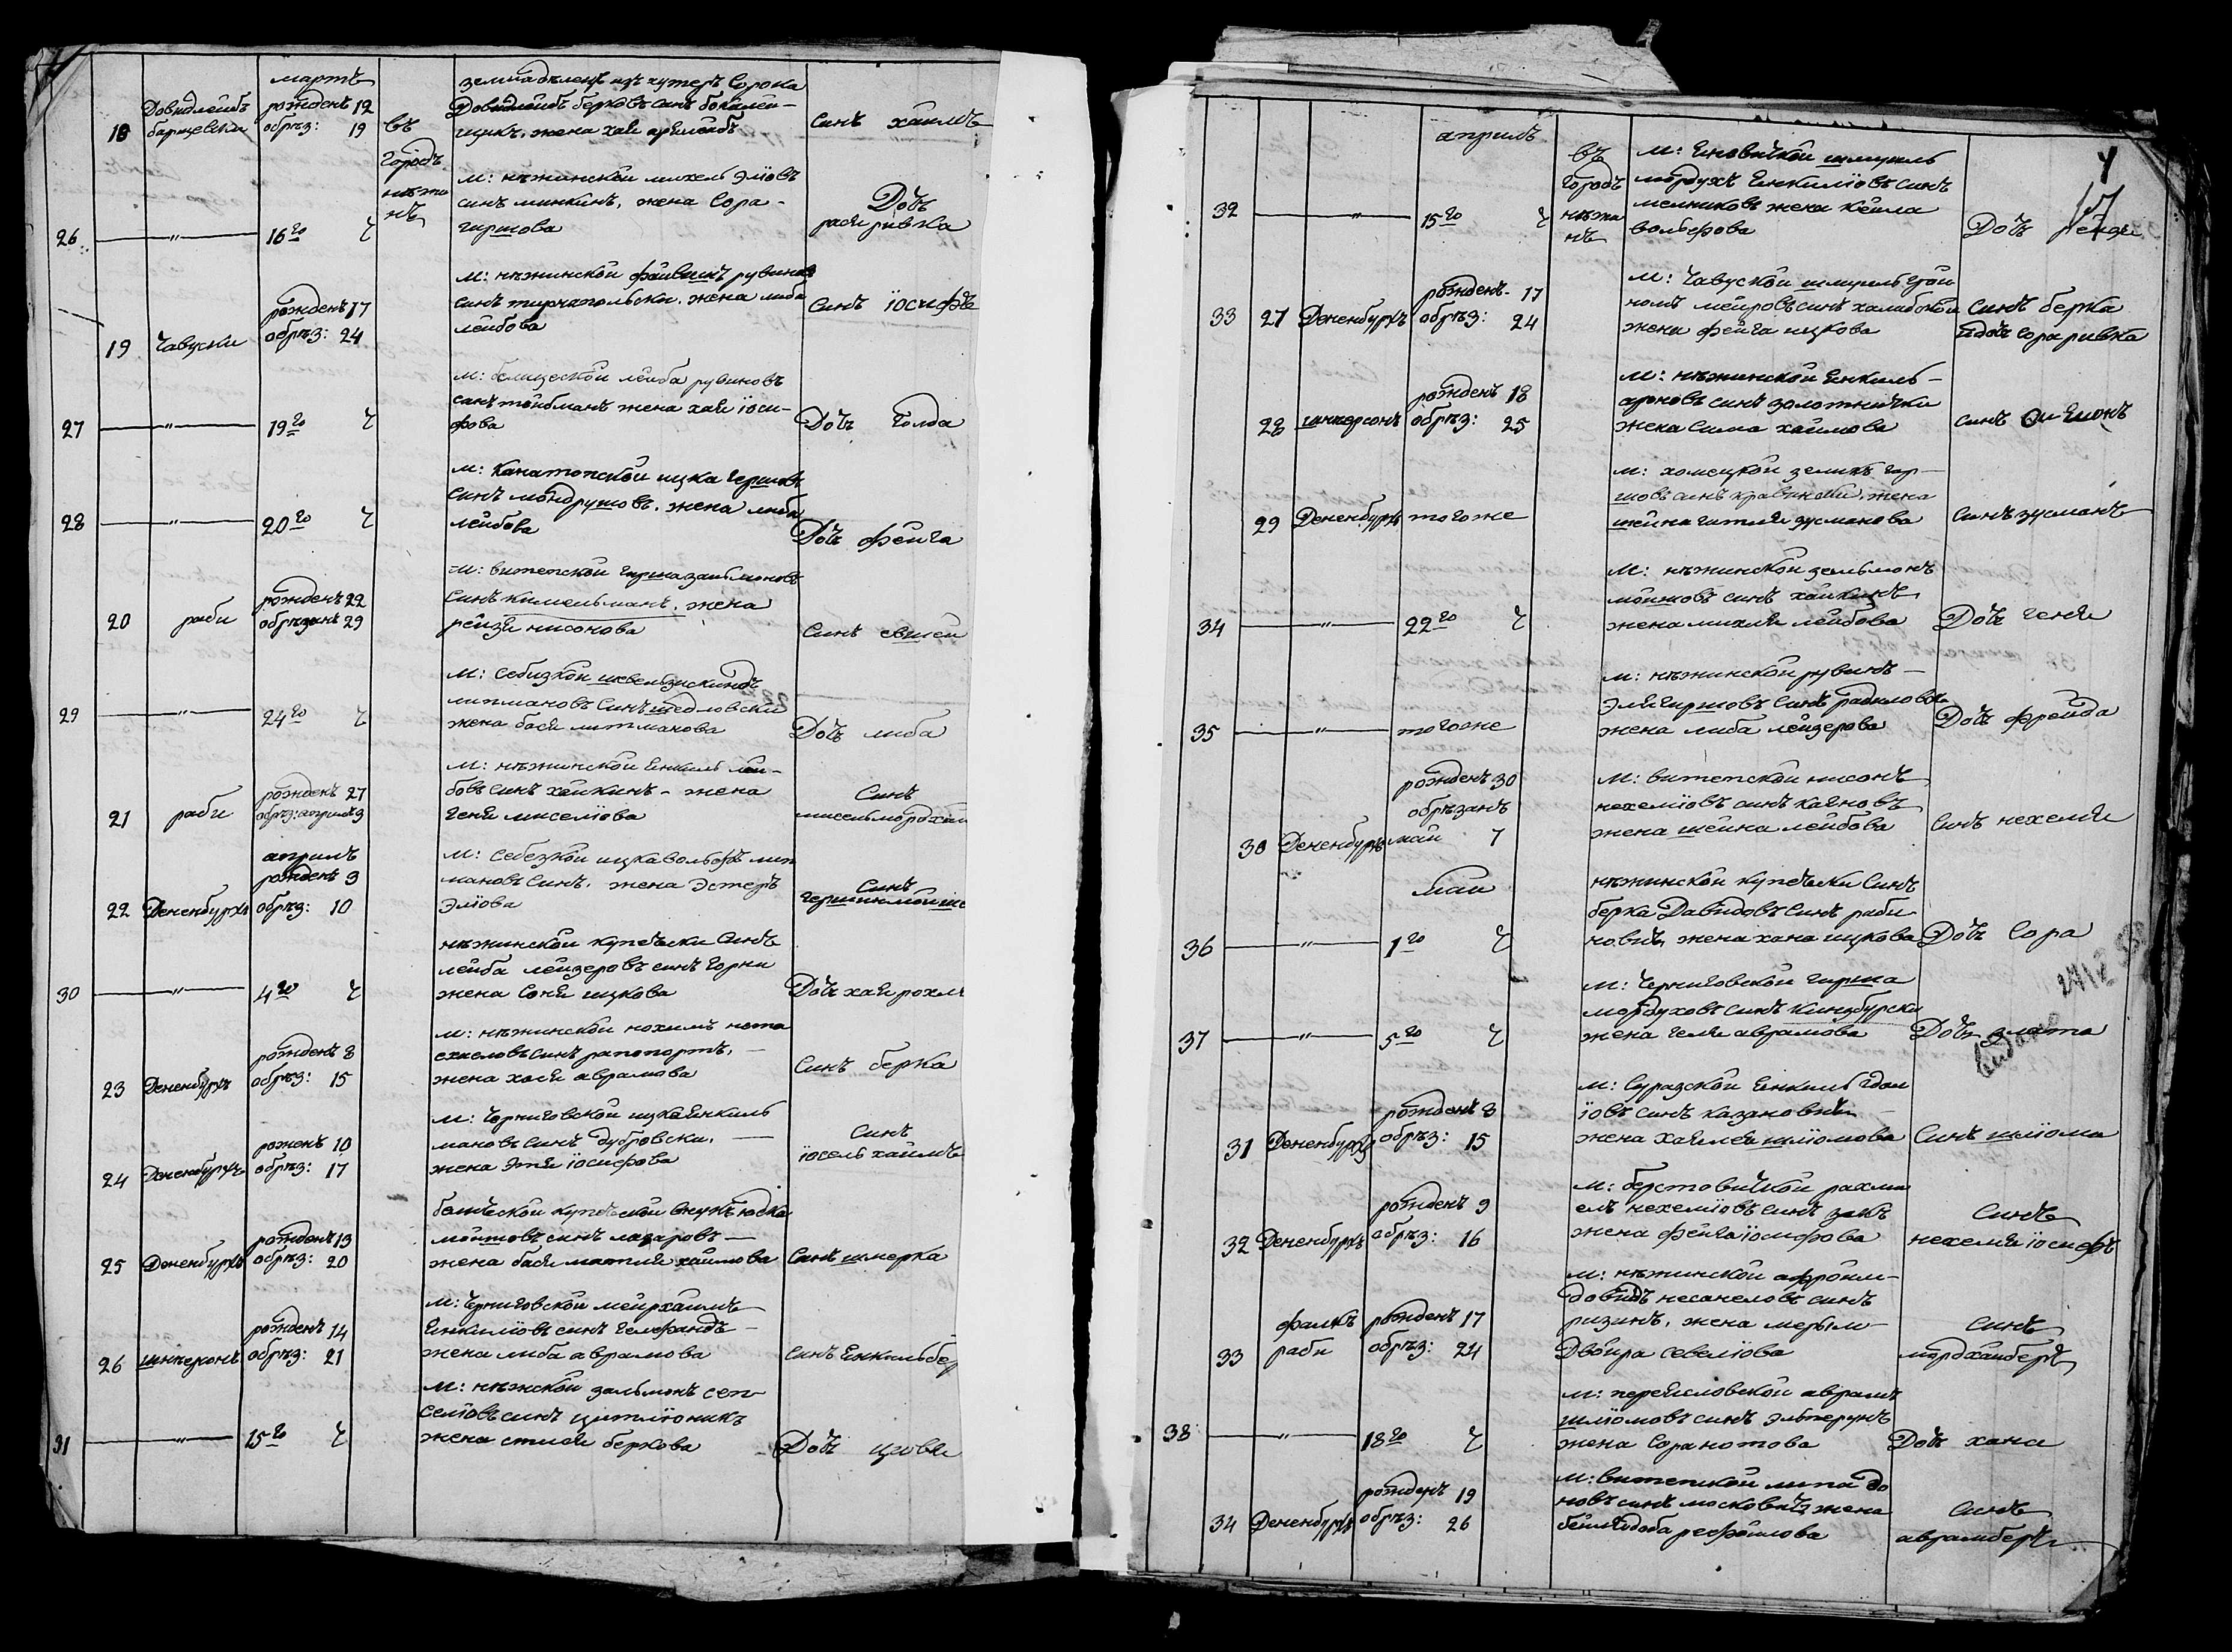 мартъ
18 Довидлейбъ
барщевски
рожденъ 12
обрѣз: 19
въ
городѣ
нѣжи
нѣ
Довидлейбъ берковъ синъ
щикъ, жена хая
синъ хаимъ
26 — " — 16го
м: нѣжинской михель эліовъ
синъ минкинъ, жена Сора
гиршова
Дочь
рая ривка
19 Чавуски
рожденъ 17
обрѣз: 24
м: нѣжинской файвишъ рувинов
синъ жена либа
лейбова
Синъ іосифъ
27 — " — 19го
м: лейба рувиновъ
синъ тойбманъ жена хая іоси-
фова
Дочь Голда
28 — " — 20го
м: Канатопской ицка Гершовъ
синъ мондрушовъ. жена либа
лейбова
Дочь фейга
20 раби
рожденъ 22
обрѣзанъ 29
м: витепской гирша залмоновъ
синъ кимельманъ. жена
рейзя нисонова
Синъ евсей
29 — " — 24го
м: Себизкой шевельзискиндъ
липмановъ Синъ шедловски
жена бася литманова
Дочь либа
21 раби
рожденъ 27
обрѣз: апрыля 3
м: нѣжинской Енкиль лей-
бовъ синъ хайкинъ - жена
Геня миселіова
Синъ
мисель мордхай
апрыль
22 Дененбургъ
рожденъ 3
обрѣз: 10
м: Себезкой ицка вольфъ лип
мановъ Синъ. жена Эстеръ
Эліова
Синъ
гершинмойше
30 — " — 4го
нѣжинской купечески синъ
лейба лейзеровъ синъ Горни
жена Соня ицкова
Дочь хая рохля
23 Дененбургъ
рожденъ 8
обрѣз: 15
м: нѣжинской нохимъ нота
синъ рапопортъ, —
жена хася аврамова
Синъ берка
24 Дененбургъ
роженъ 10
обрѣз: 17
м: Черниговской ицка Енкиль
мановъ синъ дубровски, —
жена Этя іосифова
Синъ
іосель хаимъ
25 Дененбургъ
рожденъ 13
обрѣз: 20
купеческой внукъ юдка
мойшовъ синъ лазаровъ —
жена бася матля хаимова
Синъ шмерка
26 шнеерсонъ
рожденъ 14
обрѣз: 21
м: Черниговской меирхаимъ
Енкиліовъ синъ Гелфандъ —
жена либа аврамова
синъ Енкильбер
31 — " — 15го
м: нѣжской зальмонъ
синъ
жена стися беркова
Дочь цивя
апрыль
4
17
32 — " — 15го
въ
городѣ
нѣжи
нѣ
м: шмуиль
мордухъ Енкиліовъ синъ
мелниковъ жена кейла
вольфова
Дочь рейзя
33 27 Дененбургъ
рожденъ- 17
обрѣз: 24
м: Чавуской шмуиль
меировъ синъ
жена фейга ицкова
синъ берка
идочь сора ривка
28 шнеерсонъ
рожденъ 18
обрѣз: 25
м: нѣжинской Енкиль —
ароновъ синъ золотнички
жена Сима хаимова
синъ симонъ
29 Дененбургъ тогоже
м: зеликъ гир—
шовъ синъ кравински, жена
шейна гитля зусманова
Синъ зусманъ
34 — " — 22го
м: нѣжинской зельмонъ
мойшовъ синъ хайкинъ,
жена михля лейбова
Дочь геня
35 — " — тогоже
м: нѣжинской рувинъ —
эля гиршовъ синъ
жена либа лейзерова
Дочь фрейда
30 Дененбургъ
рожденъ 30
обрѣзанъ
май 7
м: витепской нисонъ
нехеміовъ синъ каяновъ
жена шейна лейбова
Синъ нехемя
май
36 — " — 1го
нѣжинской купечески синъ
берка Давидовъ Синъ раби
новичъ, жена хана ицкова
Дочь Сора
37 — " — 5го
м: Черниговской гирша
мордуховъ синъ кинзбурски
жена геля аврамова
Дочь злата
31 Дененбургъ
рожденъ 8
обрѣз: 15
м: Суразской Енкиль Гдал
іовъ синъ казановичъ —
жена хая лея шліомова
Синъ шліома
32 Дененбургъ
рожденъ 9
обрѣз: 16
м: рахми
елъ нехеміовъ синъ закъ
жена фейга іосифова
Синъ
нехемя іосифъ
33 фалкъ
раби
рожденъ 17
обрѣз: 24
м: нѣжинской афроим—
довидъ несанеловъ синъ
ризинъ, жена мерым—
Двойра севеліова
синъ
мордхайберъ
38 — " — 18го
м: переясловской аврамъ
шліомовъ синъ эльперунъ
жена Сора нотова
Дочь хана
34 Дененбургъ
рожденъ 19
обрѣз: 26
м: витепской липа до
новъ синъ московичъ жена
бейлядоба рефоилова
Синъ
аврамберъ